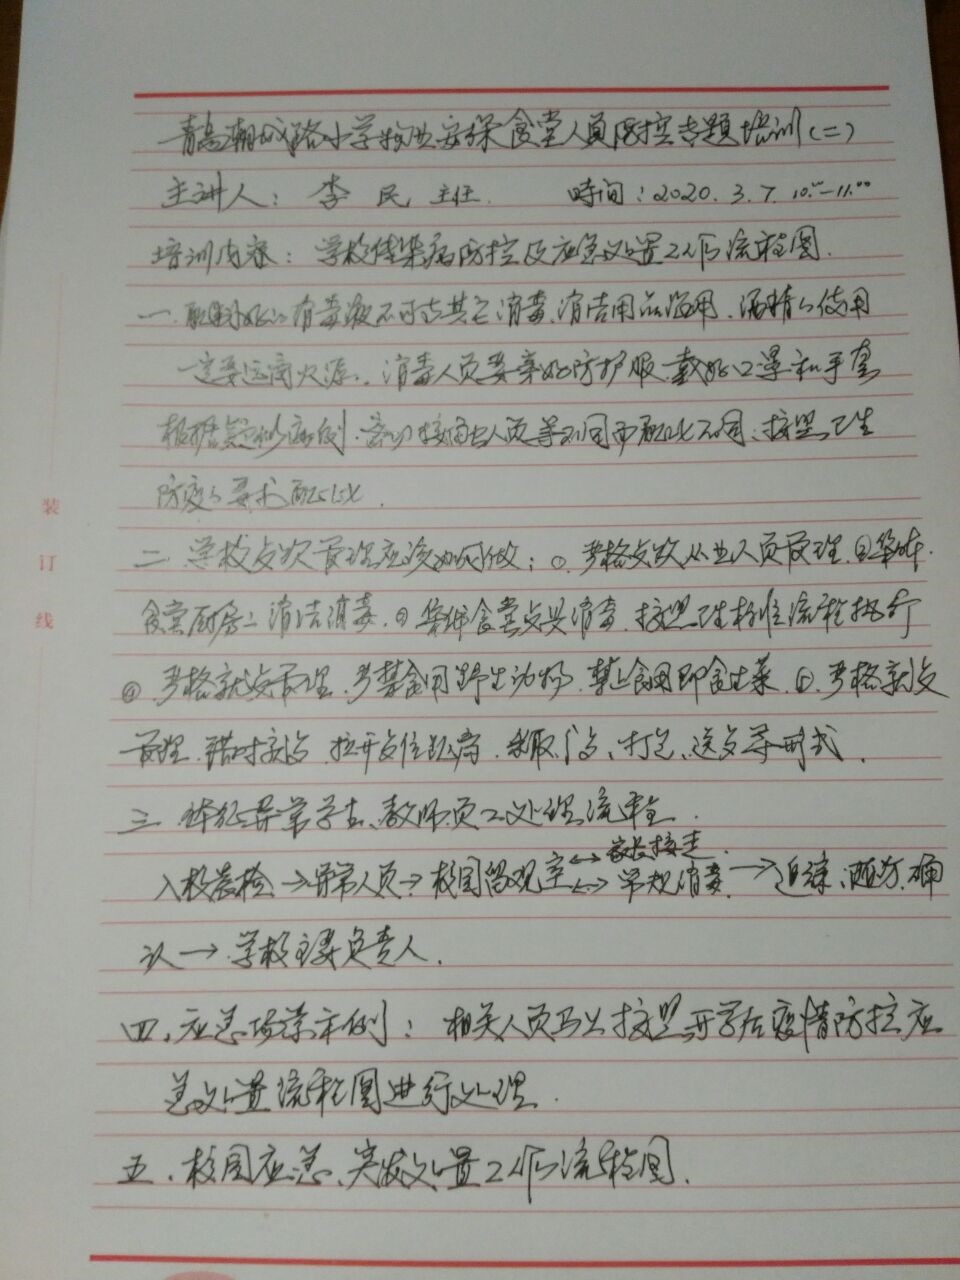 青岛潮城路小学物业安保食堂人员防控专题培训(二)
主讲人: 李民 主任 时间:2020.3.7. 10:00—11:00
培训内容: 学校传染病防控及应急处置工作流程图.
一. 配制好的消毒液不可与其它消毒、清洁用品混用. 酒精的使用
一定要远离火源. 消毒人员要穿好防护服 戴好口罩和手套
根据疑似病例、密切接触人员等不同而配比不同、按照卫生
防疫的要求配比.
装
订
线
二. 学校点次管理应该如何做: ①. 严格点次从业人员管理. ②整体.
食堂厨房的清洁消毒. ③ 集体食堂点具消毒. 按照卫生标准流程执行
④. 严格就点管理. 严禁食用野生动物. 禁止食用即食生菜. ⑤. 严格就点
管理. 错时就点 拉开点位距离. 采取分点、打包、送点等形式.
三. 体征异常学生、教师员工处理流程.
家长接走.
入校晨检 → 异常人员 → 校园留观室 ↔ 常规消毒. → 追踪、随访、确
认 → 学校主要负责人.
四. 应急场景示例: 相关人员马上按照开学后疫情防控应
急处置流程图进行处理.
五. 校园应急、突发处置工作流程图.